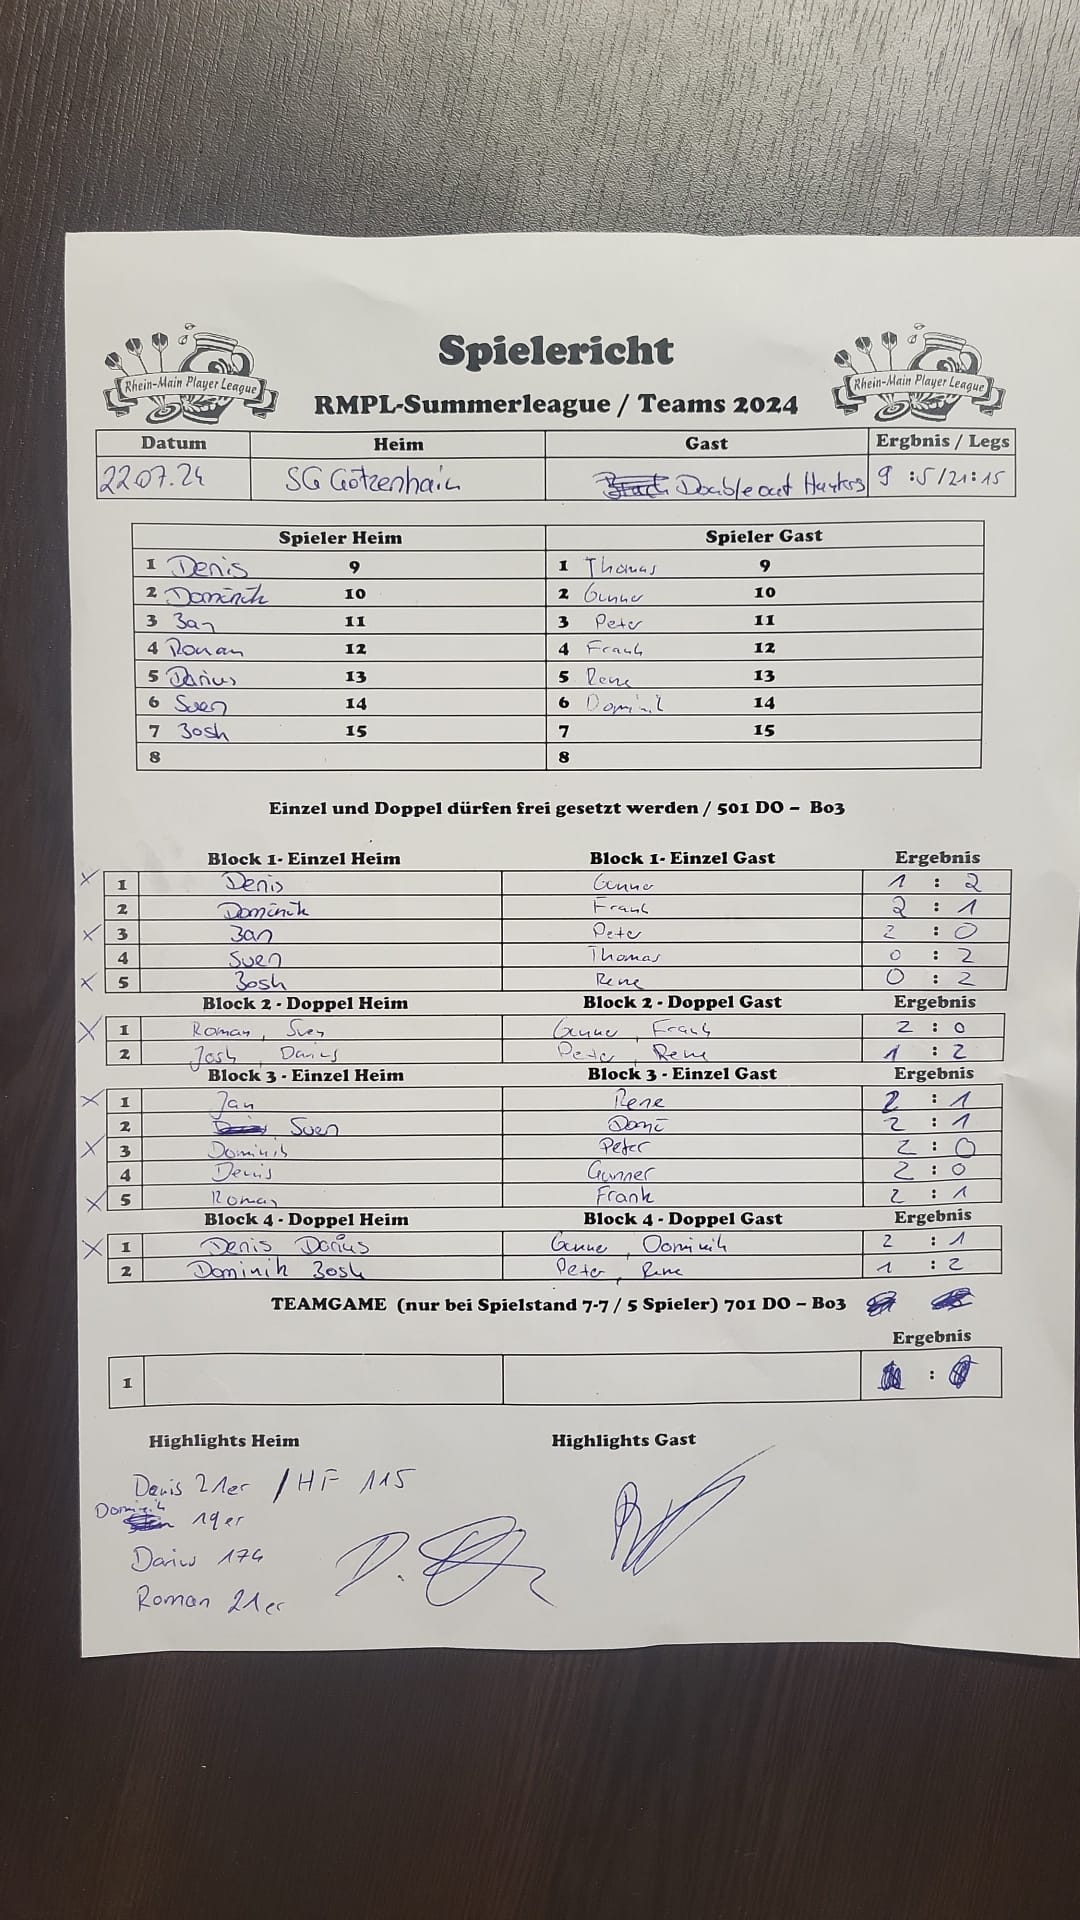 Spielericht
Rhein-Main Player League
Rhein-Main Player League
RMPL-Summerleague / Teams 2024
Datum Heim Gast Ergbnis / Legs
22.07.24 SG Götzenhain Double out Hunters 9 :5 / 21:15
Spieler Heim Spieler Gast
1 Denis 9 1 Thomas 9
2 Dominik 10 2 Gunner 10
3 Jan 11 3 Peter 11
4 Roman 12 4 Frank 12
5 Darius 13 5 Rene 13
6 Sven 14 6 Dominik 14
7 Josh 15 7 15
8 8
Einzel und Doppel dürfen frei gesetzt werden / 501 DO – Bo3
Block 1- Einzel Heim Block 1- Einzel Gast Ergebnis
X 1 Denis Gunner 1 : 2
2 Dominik Frank 2 : 1
X 3 Jan Peter 2 : 0
4 Sven Thomas 0 : 2
X 5 Josh Rene 0 : 2
Block 2 - Doppel Heim Block 2 - Doppel Gast Ergebnis
X 1 Roman , Sven Gunner , Frank 2 : 0
2 Josh , Darius Peter , Rene 1 : 2
Block 3 - Einzel Heim Block 3 - Einzel Gast Ergebnis
X 1 Jan Rene 2 : 1
2 Sven Domi 2 : 1
X 3 Dominik Peter 2 : 0
4 Denis Gunner 2 : 0
X 5 Roman Frank 2 : 1
Block 4 - Doppel Heim Block 4 - Doppel Gast Ergebnis
X 1 Denis Darius Gunner , Dominik 2 : 1
2 Dominik Josh Peter , Rene 1 : 2
TEAMGAME (nur bei Spielstand 7-7 / 5 Spieler) 701 DO – Bo3
Ergebnis
1 :
Highlights Heim Highlights Gast
Denis 21er / HF 115
Dominik 19er
Darius 174
Roman 21er